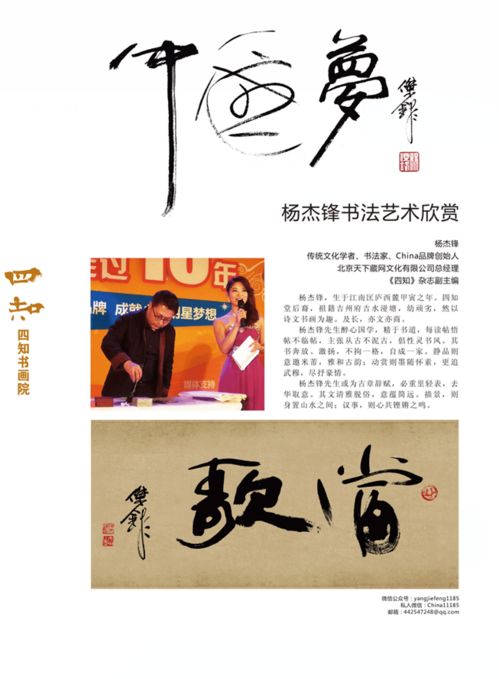 中国梦
傑鋒
杨杰锋书法艺术欣赏
杨杰锋
传统文化学者、书法家、China品牌创始人
北京天下藏网文化有限公司总经理
《四知》杂志副主编
四知
四知书画院
走过10年
品牌 成就 明星梦想
媒体支持
杨杰锋，生于江南区庐西麓甲寅之年。四知
堂后裔，祖籍吉州府吉水漫塘，幼顽劣，然以
诗文书画为趣。及长，亦文亦商。
杨杰锋先生醉心国学，精于书道，每读帖悟
帖不临帖，主张从古不泥古，倡性灵书风。其
书奔放、激扬，不拘一格，自成一家。静品则
意邈米芾，雅和古韵；动赏则墨随怀素，更追
武穆，尽抒豪情。
杨杰锋先生或为古章辞赋，必重里轻表，去
华取意。其文清雅脱俗，意蕴简远。描景，则
身置山水之间；议事，则心共铿锵之鸣。
當歌
傑鋒
微信公众号：yangjiefeng1185
私人微信：China11185
邮箱：442547248@qq.com